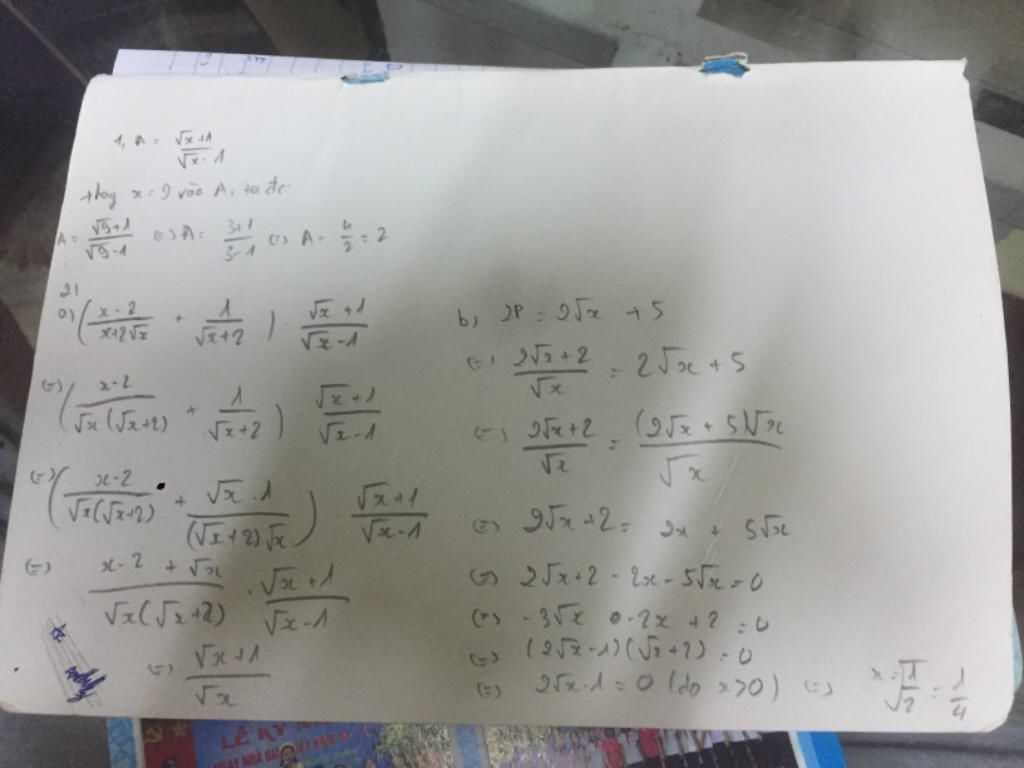 1, A = \frac{\sqrt{x}+1}{\sqrt{x}-1}
thay x = 9 vào A, ta đc:
A = \frac{\sqrt{9}+1}{\sqrt{9}-1} (=) A = \frac{3+1}{3-1} (=) A = \frac{4}{2} = 2
2)
a) (\frac{x-2}{x+2\sqrt{x}} + \frac{1}{\sqrt{x}+2}) . \frac{\sqrt{x}+1}{\sqrt{x}-1}
(=) (\frac{x-2}{\sqrt{x}(\sqrt{x}+2)} + \frac{1}{\sqrt{x}+2}) \frac{\sqrt{x}+1}{\sqrt{x}-1}
(=) (\frac{x-2}{\sqrt{x}(\sqrt{x}+2)} + \frac{\sqrt{x}.1}{(\sqrt{x}+2)\sqrt{x}}) . \frac{\sqrt{x}+1}{\sqrt{x}-1}
(=) \frac{x-2+\sqrt{x}}{\sqrt{x}(\sqrt{x}+2)} . \frac{\sqrt{x}+1}{\sqrt{x}-1}
(=) \frac{\sqrt{x}+1}{\sqrt{x}}
b) 2P = 2\sqrt{x} + 5
(=) \frac{2\sqrt{x}+2}{\sqrt{x}} = 2\sqrt{x} + 5
(=) \frac{2\sqrt{x}+2}{\sqrt{x}} = \frac{(2\sqrt{x}+5)\sqrt{x}}{\sqrt{x}}
(=) 2\sqrt{x}+2 = 2x + 5\sqrt{x}
(=) 2\sqrt{x}+2 - 2x - 5\sqrt{x} = 0
(=) -3\sqrt{x} - 2x + 2 = 0
(=) (2\sqrt{x}-1)(\sqrt{x}+2) = 0
(=) 2\sqrt{x}-1 = 0 (do x>0) (=) x = \sqrt{\frac{1}{2}} = \frac{1}{4}
LỄ KỶ